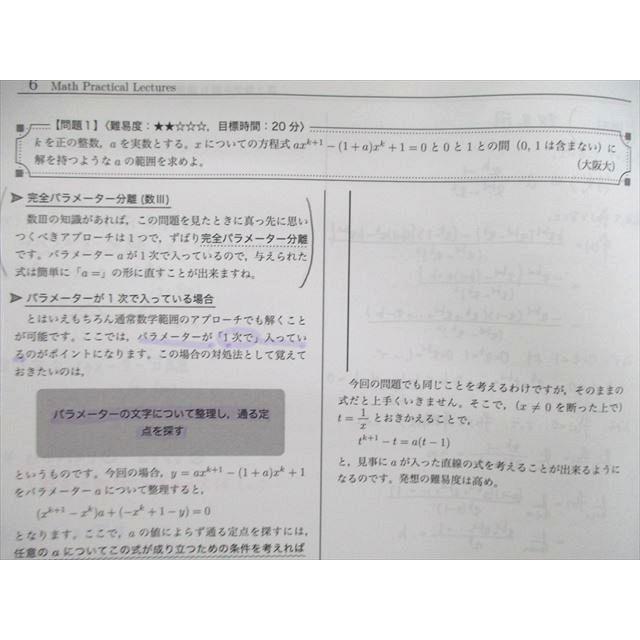 6 Math Practical Lectures
【問題1】〈難易度：★★☆☆☆，目標時間：20分〉
kを正の整数，aを実数とする。xについての方程式 ax^{k+1}−(1+a)x^k+1=0 と0と1との間（0, 1は含まない）に
解を持つようなaの範囲を求めよ。
（大阪大）
➤ 完全パラメーター分離 (数III)
数IIIの知識があれば，この問題を見たときに真っ先に思い
つくべきアプローチは1つで，ずばり完全パラメーター分離
です。パラメーターaが1次で入っているので，与えられた
式は簡単に「a=」の形に直すことが出来ますね。
➤ パラメーターが1次で入っている場合
とはいえもちろん通常数学範囲のアプローチでも解くこと
が可能です。ここでは，パラメーターが「1次で」入ってい
るのがポイントになります。この場合の対処法として覚えて
おきたいのは，
パラメーターの文字について整理し，通る定
点を探す
というものです。今回の場合，y=ax^{k+1}−(1+a)x^k+1
をパラメーターaについて整理すると，
(x^{k+1}−x^k)a+(−x^k+1−y)=0
となります。ここで，aの値によらず通る定点を探すには，
任意のaについてこの式が成り立つための条件を考えれば
今回の問題でも同じことを考えるわけですが，そのままの
式だと上手くいきません。そこで，(x≠0を断った上で)
t=1/x とおきかえることで，
t^{k+1}−t=a(t−1)
と，見事にaが入った直線の式を考えることが出来るように
なるのです。発想の難易度は高め。